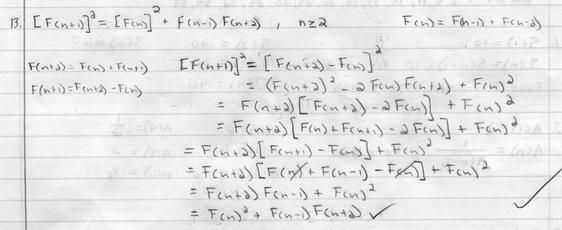 13. [F(n+1)]² = [F(n)]² + F(n-1) F(n+2) , n≥2 F(n) = F(n-1) + F(n-2)
F(n+2) = F(n) + F(n+1) [F(n+1)]² = [F(n+2) - F(n)]²
F(n+1) = F(n+2) - F(n) = (F(n+2)² - 2F(n)F(n+2) + F(n)²
= F(n+2)[F(n+2) - 2F(n)] + F(n)²
= F(n+2)[F(n) + F(n+1) - 2F(n)] + F(n)²
= F(n+2)[F(n+1) - F(n)] + F(n)²
= F(n+2)[F(n) + F(n-1) - F(n)] + F(n)²
= F(n+2) F(n-1) + F(n)²
= F(n)² + F(n-1) F(n+2) ✓